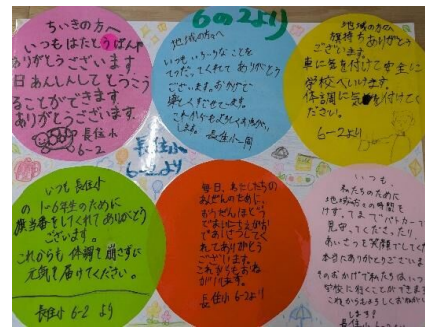 6の2より
ちいきの方へ
いつもはたとうばんや
ありがとうございます
日あんしんしてとうこう
ることができます
ありがとうございます。
長住小
6-2
地域の方へ
いつもいろいろなことを
てつだってくれてありがとう
ございます。おかげで
楽しくすごせてます。
これからもよろしくおねがい
します。
長住小
地域の方へ
旗持ちありがとう
ございます。
車に気を付けて安全に
学校へいけます。
体調に気を付けてく
ださい。
6-2より
長住小
6-2より
いつも長住小
の1~6年生のために
旗当番をしてくれてありがとう
ございます。
これからも体調を崩さずに
元気を届けてください。
長住小 6-2 より
毎日、わたしたちの
あんぜんのために、
であいさつして
れてありがとう
ございます。
これからもおね
がいします。
長住小 6-2より
いつも、
私たちのために
地域の方々の時間を
けず、まで パトカーで
見守ってくださったり、
あいさつを笑顔でしてくだ
本当にありがとうございます
そのおかげで私たちはいつ
学校に行くことができます
これからもよろしくおねがい
します!
長住小 6-2より